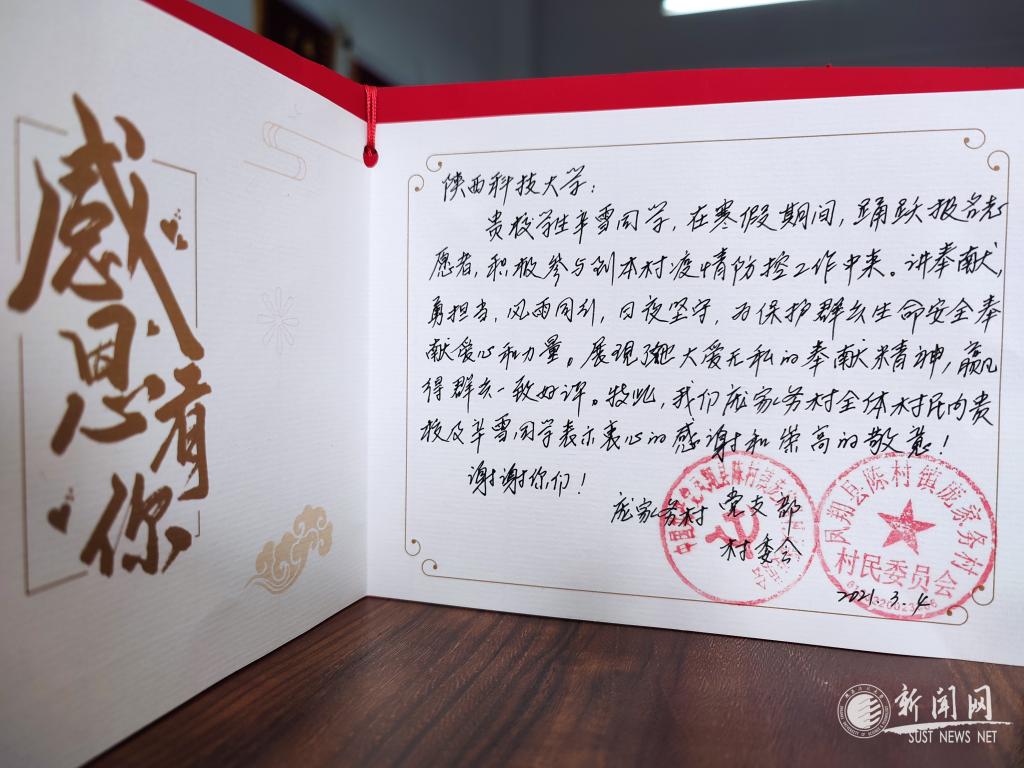 感恩有你
陕西科技大学：
贵校学生芈雪同学，在寒假期间，踊跃报名志
愿者，积极参与到本村疫情防控工作中来。讲奉献，
勇担当，风雨同行，日夜坚守，为保护群众生命安全奉
献爱心和力量。展现了她大爱无私的奉献精神，赢
得群众一致好评。特此，我们庞家务村全体村民向贵
校及芈雪同学表示衷心的感谢和崇高的敬意！
谢谢你们！
庞家务村 党支部
村委会
2021.3.4
凤翔县陈村镇庞家务村
村民委员会
新闻网
SUST NEWS NET